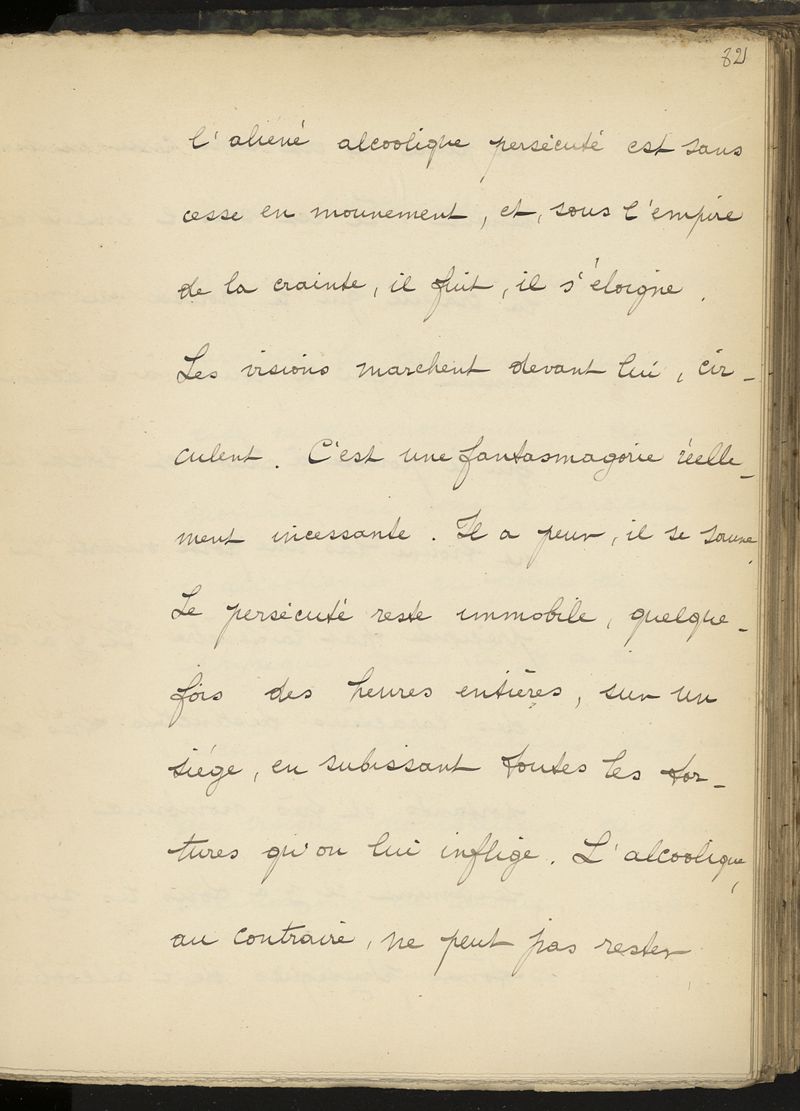 82
l'aliéné alcoolique persécuté est sans
cesse en mouvement, et, sous l'empire
de la crainte, il fuit, il s'éloigne.
Les visions marchent devant lui, cir-
culent. C'est une fantasmagorie réelle-
ment incessante. Il a peur, il se sauve.
Le persécuté reste immobile, quelque-
fois des heures entières, sur un
siége, en subissant toutes les tor-
tures qu'on lui inflige. L'alcoolique,
au contraire, ne peut pas rester